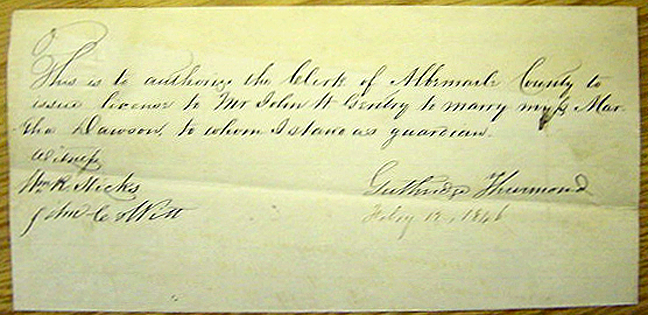 This is to authorize the Clerk of Albemarle County to
issue license to Mr John W Gentry to marry miss Mar-
tha Dawson, to whom I stand as guardian.
Witness
Wm R Hicks
John C Witt
Gutbridge Thurmond
Feby 12, 1846